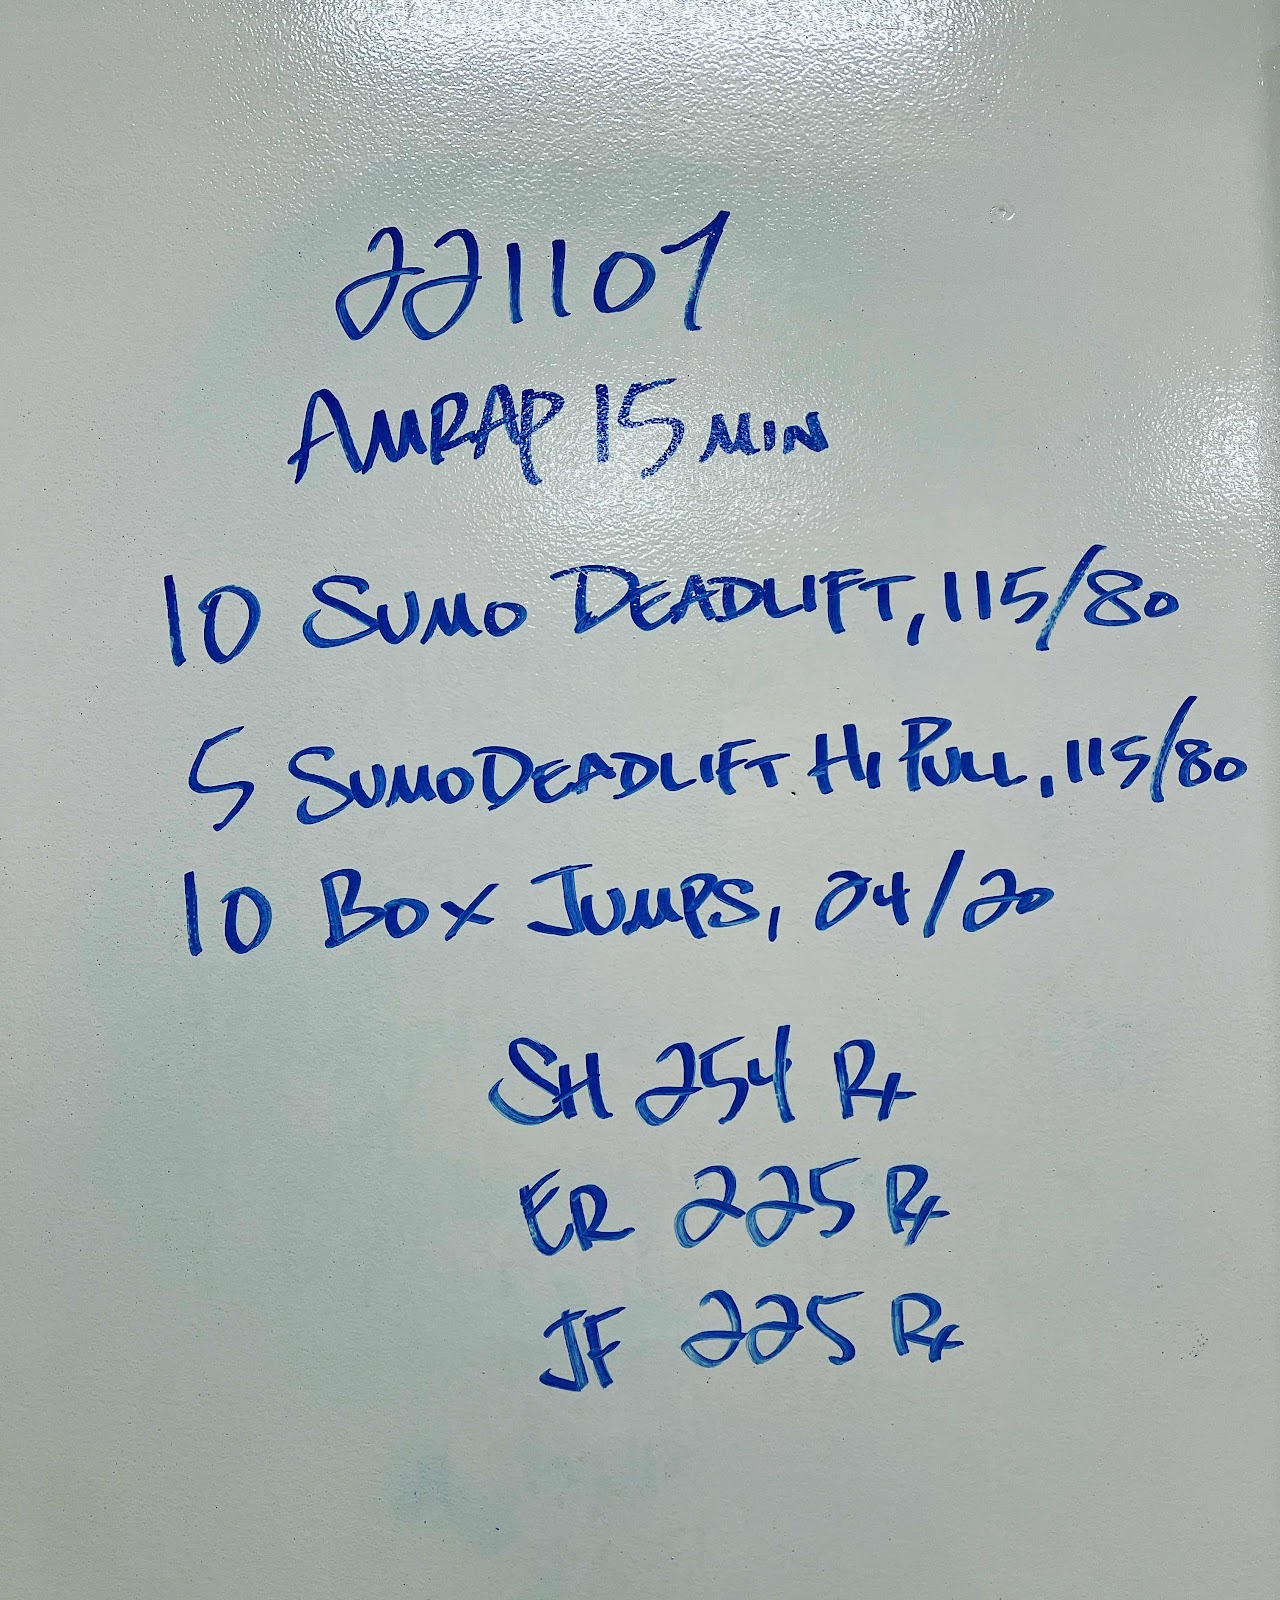 221107
AMRAP 15 MIN
10 SUMO DEADLIFT, 115/80
5 SUMO DEADLIFT HI PULL, 115/80
10 BOX JUMPS, 24/20
SH 254 Rx
ER 225 Rx
JF 225 Rx